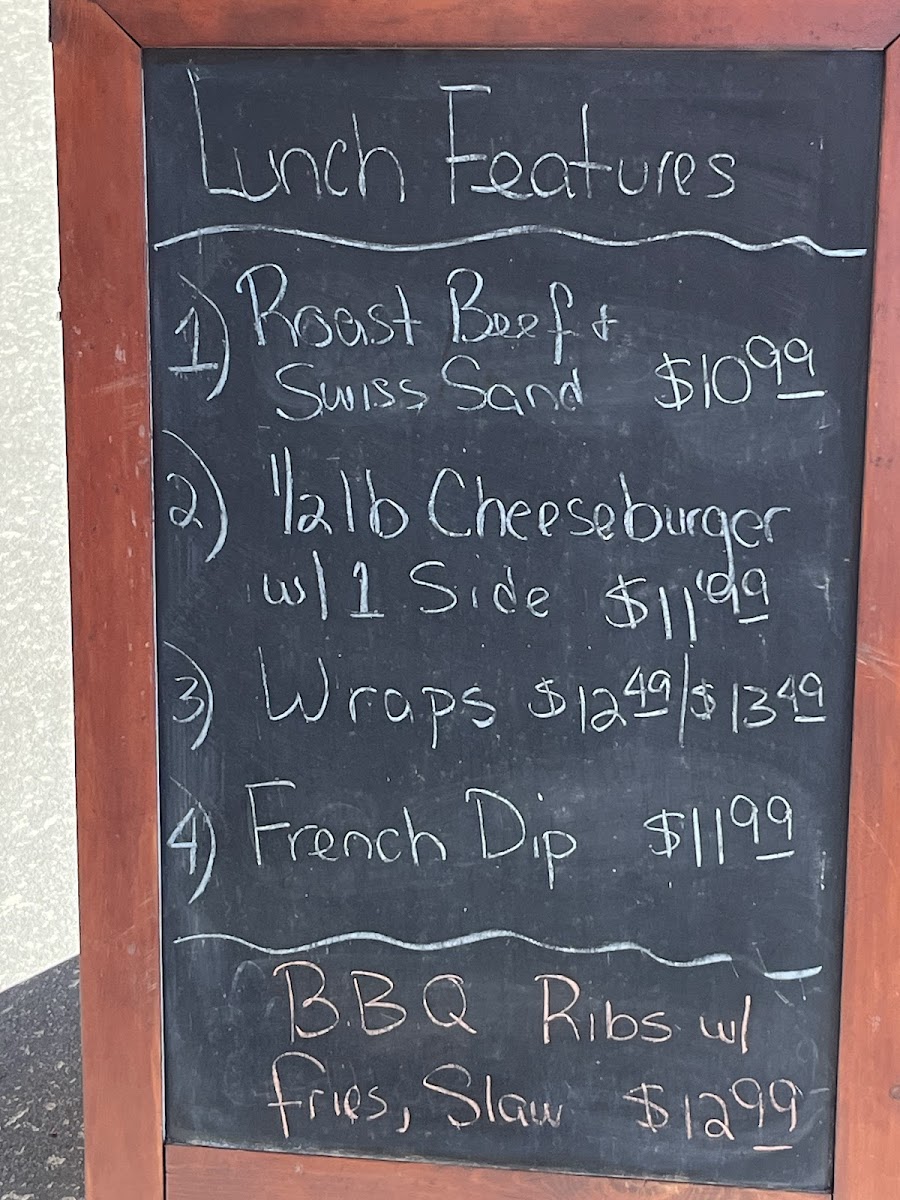 Lunch Features
1) Roast Beef +
Swiss Sand $10 99
2) 1/2 lb Cheeseburger
w/ 1 Side $11 99
3) Wraps $12 49/$13 49
4) French Dip $11 99
B.B.Q Ribs w/
fries, Slaw $12 99